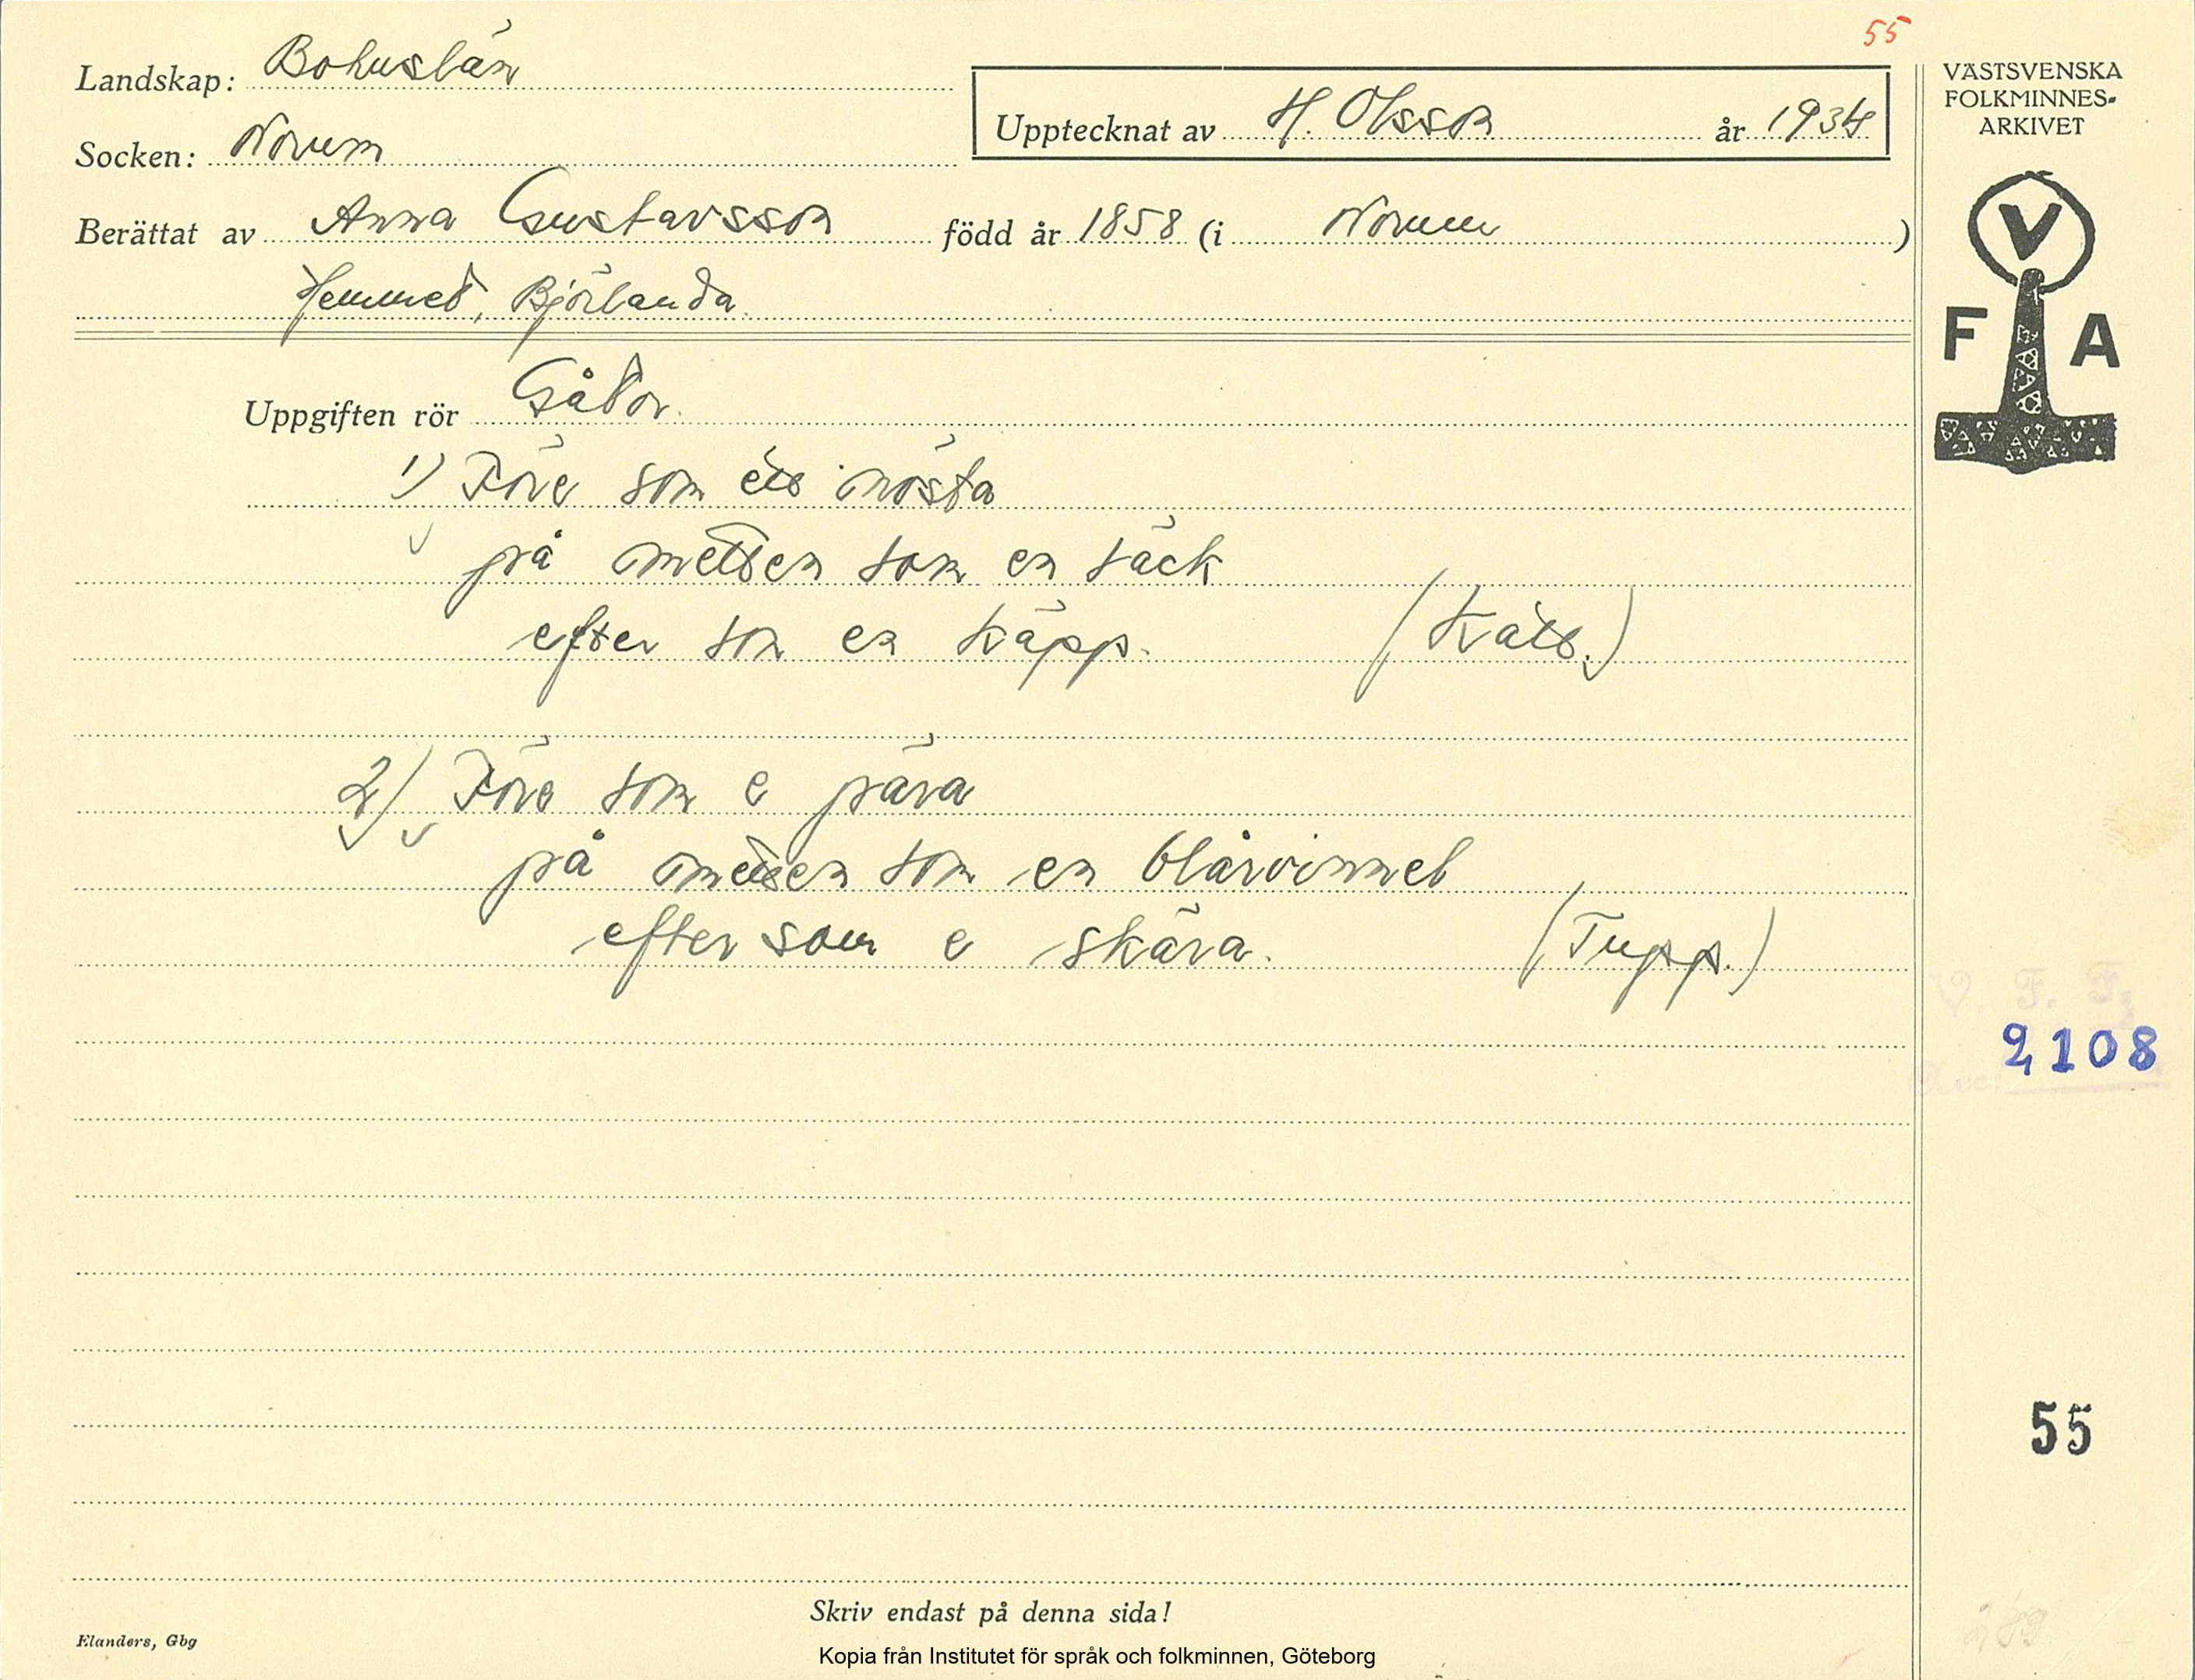 55
Landskap: Bohuslän
Socken: Norum
Upptecknat av H. Olsson år 1934
Berättat av Anna Gustavsson född år 1858 (i Norum)
Hemmet, Björlanda.
Uppgiften rör Gåtor.
1) Före som ett nösta
på mitten som en säck
efter som en käpp. (Katt.)
2) Före som e pära
på mitten som en blårvinnel
efter som e skära. (Tupp.)
VÄSTSVENSKA
FOLKMINNES-
ARKIVET
V
F A
V. F. F.
2108
55
Skriv endast på denna sida!
Elanders, Gbg
Kopia från Institutet för språk och folkminnen, Göteborg